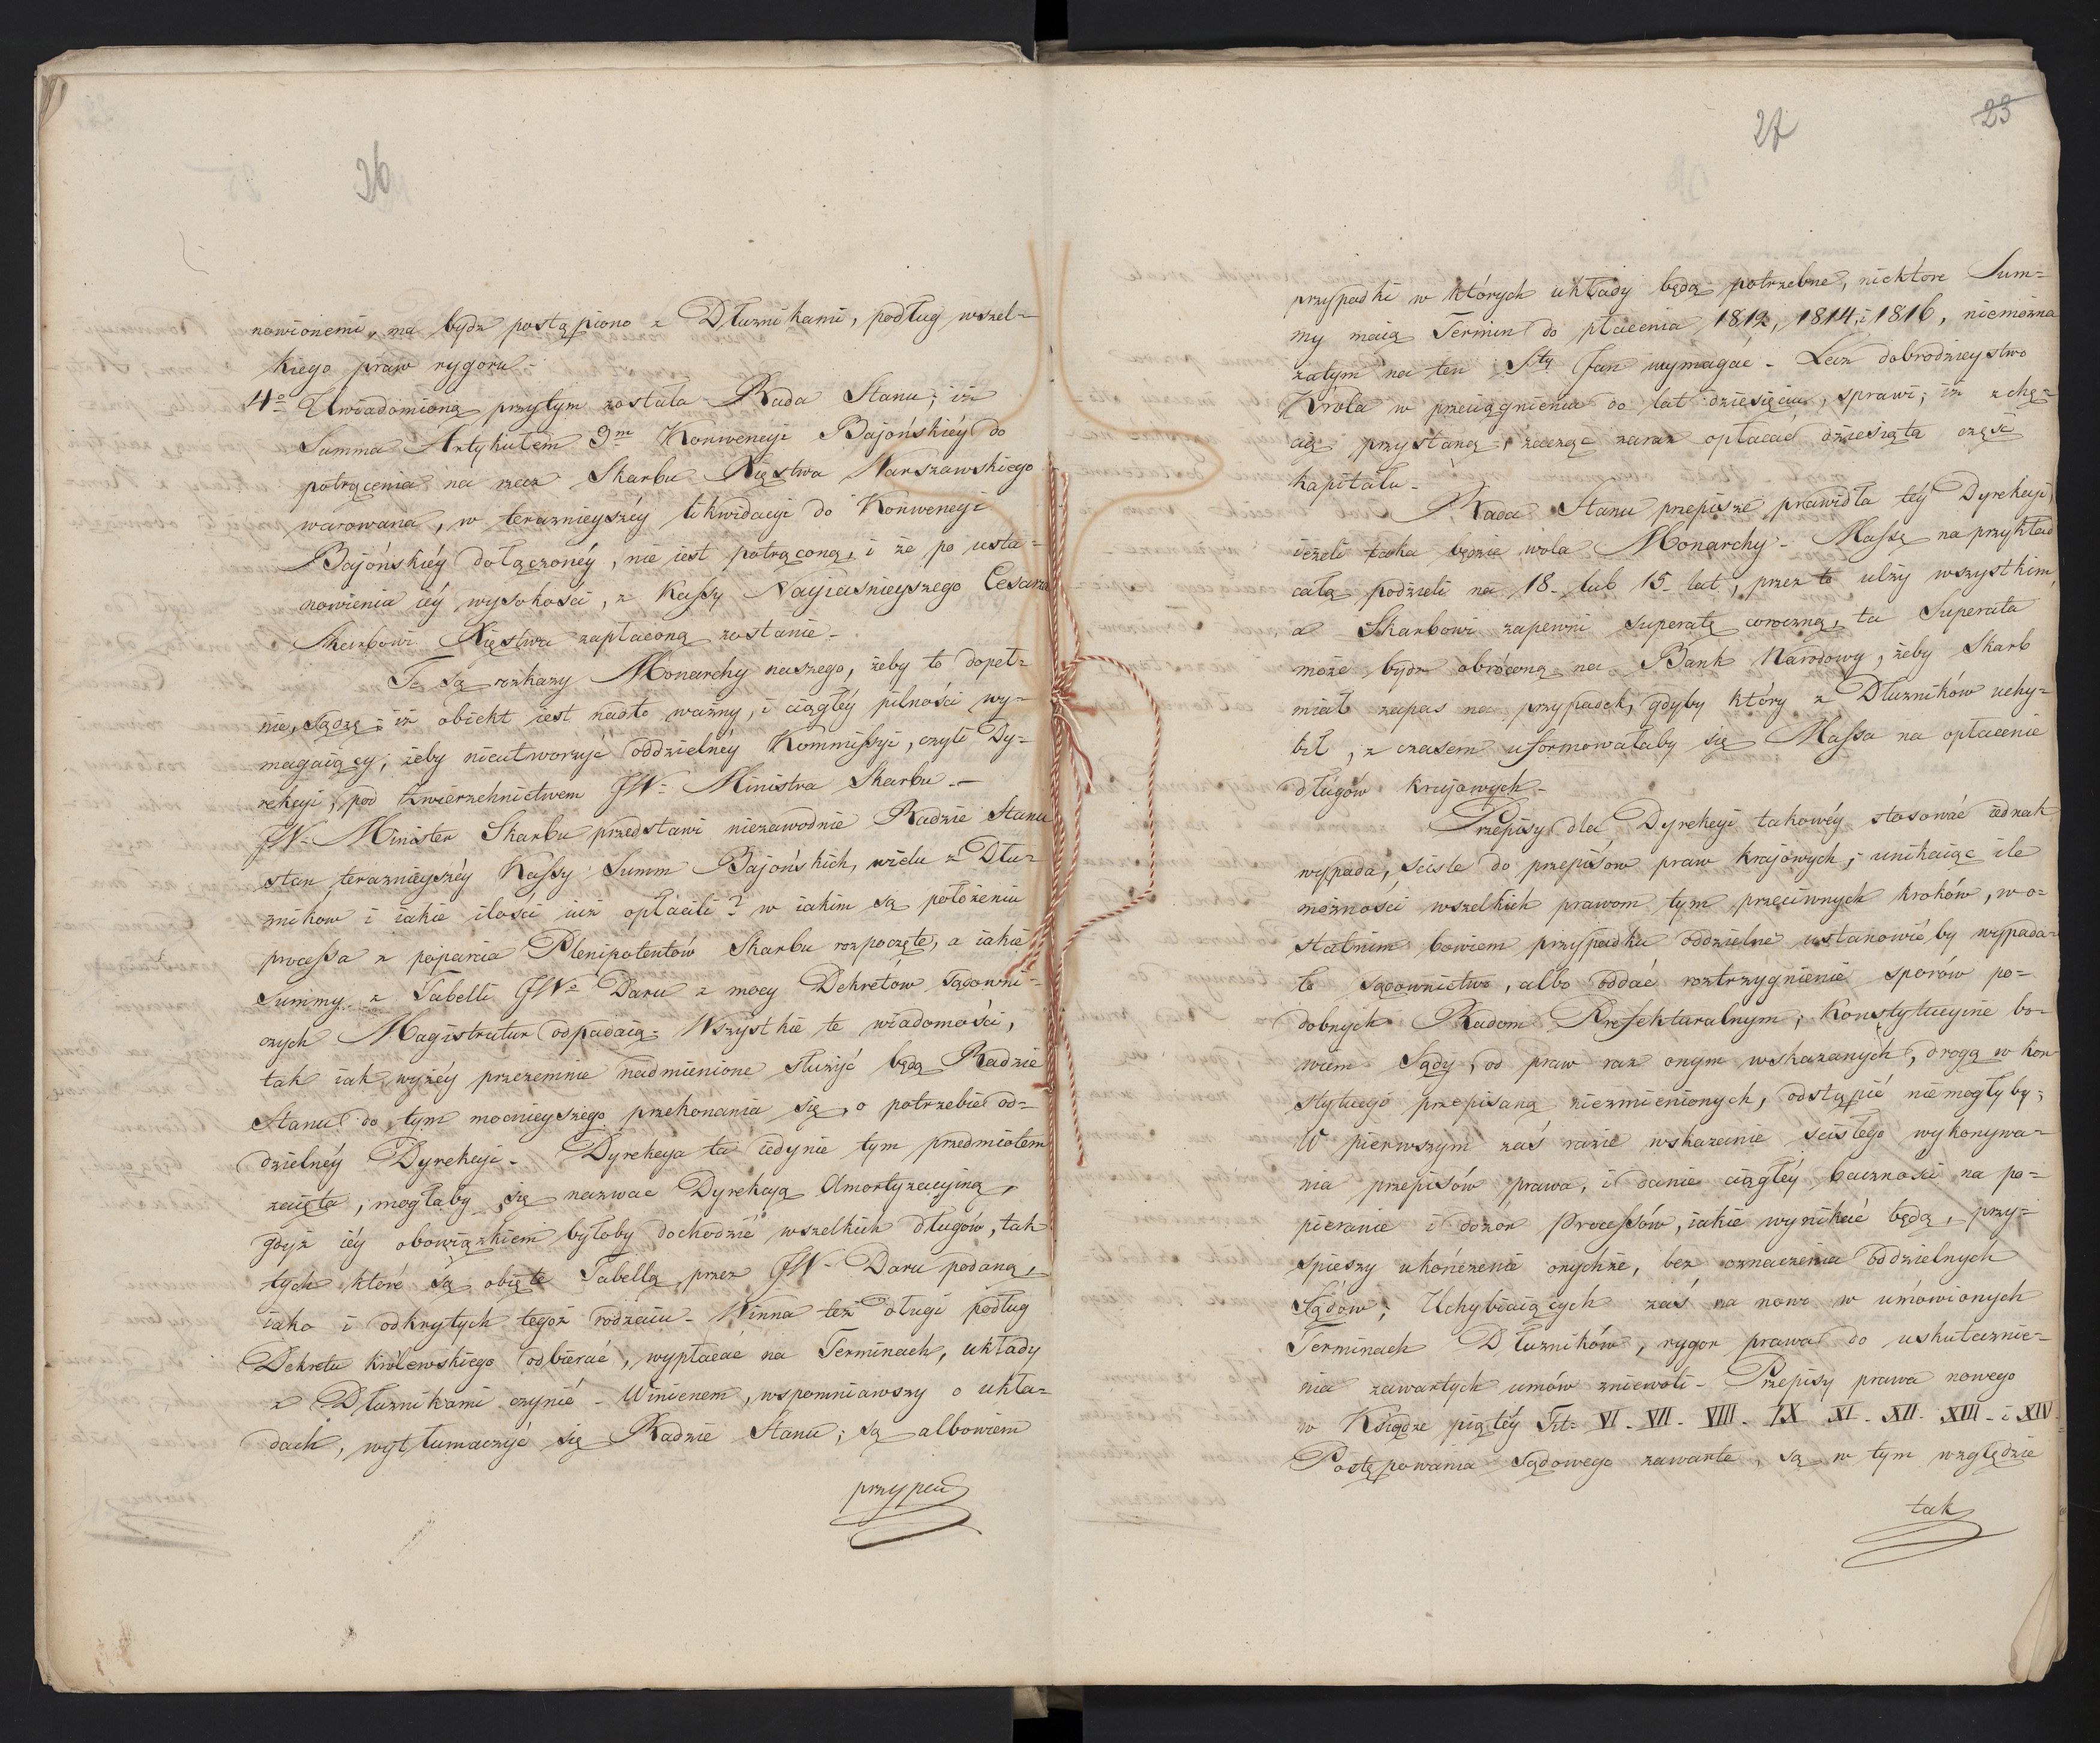 26
nowionemi, ma bydz postąpiono z Dłużnikami, podług wszel-
kiego praw rygoru.
4o Uwiadomioną przytym została Rada Stanu; iż
Summa Artykułem 9m Konwencyi Bajońskiéy do
potrącenia na rzecz Skarbu Xięstwa Warszawskiego
warowana, w teraznieyszéy likwidacyi do Konwencyi
Bajońskiéy dołączonéy, nie iest potrąconą, i że po usta-
nowienia iéy wysokości, z Kassy Nayiaśnieyszego Cesarza
Skarbowi Xięstwa zapłaconą zostanie -
Te są rozkazy Monarchy naszego, żeby to dopeł-
nie, sądzę; iż obiekt iest nadto ważny, i ciągłéy pilności wy-
magaiący; żeby nieutworzyć oddzielnéy Kommissyi, czyli Dy-
rekcyi, pod zwierzchnictwem JW- Ministra Skarbu. -
JW- Minister Skarbu przedstawi niezawodnie Radzie Stanu
stan teraznieyszéy Kassy Summ Bajońskich, wielu z Dłu-
żników i iakie ilości iuż opłacili? w iakim są położeniu
processa z poparcia Plenipotentów Skarbu rozpoczęte, a iakie
Summy z Tabelli JW- Daru z mocy Dekretów Sądowni-
czych Magistratur odpadaią - Wszystkie te wiadomości,
tak iak wyżéy przezemnie nadmienione służyć będą Radzie
Stanu do tym mocnieyszego przekonania się, o potrzebie od-
dzielnéy Dyrekcyi - Dyrekcya ta iedynie tym przedmiotem
zaięta, mogłaby się nazwać Dyrekcyą Amortyzacyiną,
gdyż iéy obowiązkiem byłoby dochodzić wszelkich długów, tak
tych które są obięte Tabellą, przez JW- Daru podaną,
iako i odkrytych tegoż rodzaiu - Winna też długi podług
Dekretu królewskiego odbierać, wypłacać na Terminach, układy
z Dłużnikami czynić - Winienem, wspomniawszy o ukła-
dach, wytłumaczyć się Radzie Stanu; są albowiem
przypad
27
23
przypadki w których układy będą potrzebne, niektóre Sum-
my maią Termin do płacenia 1812, 1814, i 1816, niemożna
zatym na ten Sty Jan wymagać - Lecz dobrodzieystwo
Króla w przeciągnieniu do lat dziesięciu, sprawi; iż z chę-
cią przystaną, i zacząć zaraz opłacać dziesiątą część
kapitału -
Rada Stanu przepisze prawidła téy Dyrekcyi
ieżeli taka będzie wola Monarchy - Massę na przykład
całą podzieli na 18- lub 15- lat, przez to ulży wszystkim,
a Skarbowi zapewni superatę coroczną, ta Superata
może bydz obróconą na Bank Narodowy, żeby Skarb
miał zapas na przypadek, gdyby który z Dłużników uchy-
bił, z czasem uformowałaby się Massa na opłacenie
długów krajowych -
Przepisy dla Dyrekcyi takowéy stosować iednak
wypada, sciśle do przepisów praw krajowych, unikaiąc ile
możności wszelkich prawom tym przeciwnych kroków, w o-
statnim bowiem przypadku oddzielne ustanowić by wypada-
ło Sądownictwo, albo oddać roztrzygnienie sporów po-
dobnych Radom Prefekturalnym; Konstytucyine bo-
wiem Sądy, od praw raz onym wskazanych, drogą w kon-
stytucyi przepisaną niezmienionych, odstąpić niemogłyby;
W pierwszym zaś razie wskazanie ścisłego wykonywa-
nia przepisów prawa, i danie ciągłéy baczności na po-
pieranie i dozór Processów, iakie wynikać będą, przy-
spieszy ukończenie onychże, bez oznaczenia oddzielnych
Sądów; Uchybiaiących zaś na nowo w umówionych
Terminach Dłużników, rygor prawa do uskutecznie-
nia zawartych umów zniewoli - Przepisy prawa nowego
w Księdze piątéy Tit- VI - VII - VIII - IX XI - XII - XIII - i XIV
Postępowania Sądowego zawarte, są w tym względzie
tak